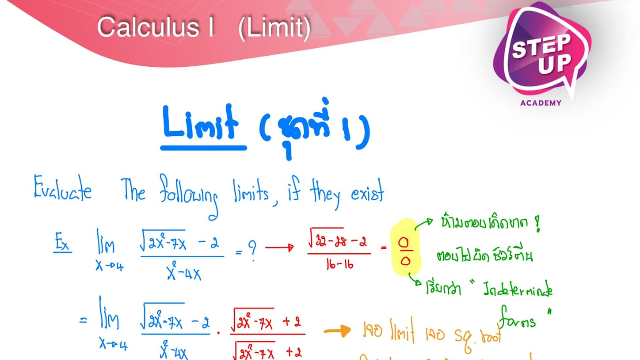 Calculus I (Limit)
STEP
UP
ACADEMY
Limit (ชุดที่ 1)
Evaluate The following limits, if they exist
Ex lim x→4 (√(2x²-7x) - 2)/(x²-4x) = ? → (√(32-28) - 2)/(16-16) = 0/0
ห้ามตอบเด็ดขาด !
ตอบไปผิดชัวร์
เรียกว่า " Indeterminate
forms "
= lim x→4 (√(2x²-7x) - 2)/(x²-4x) · (√(2x²-7x) + 2)/(√(2x²-7x) + 2) → เจอ limit เจอ sq. root